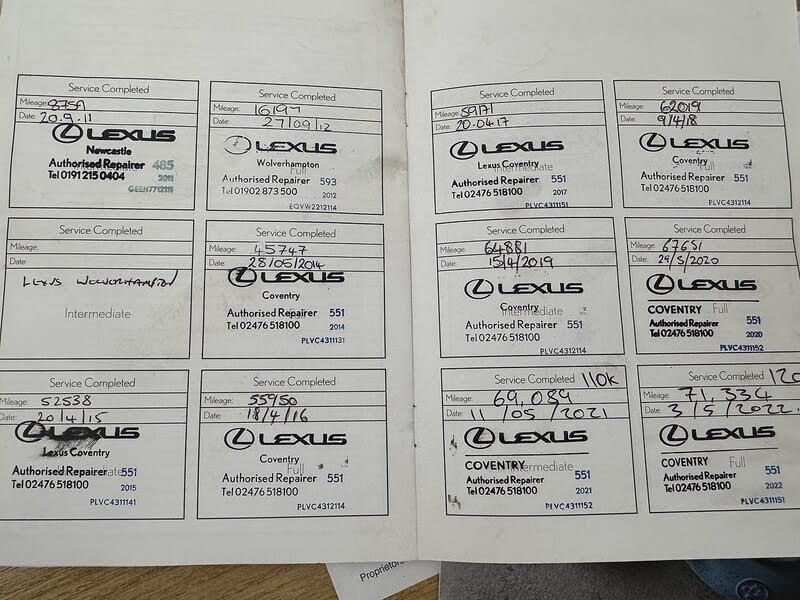 Service Completed
Mileage: 8759
Date: 20.9.11
LEXUS
Newcastle
Authorised Repairer 485
Tel 0191 215 0404 2011
GEEN7712111
Service Completed
Mileage:
Date: 27/09/12
LEXUS
Wolverhampton
Full
Authorised Repairer 593
Tel 01902 873 500 2012
EQVW2212114
Service Completed
Mileage:
Date:
LEXUS WOLVERHAMPTON
Intermediate
Service Completed
Mileage: 45747
Date: 28/05/2014
LEXUS
Coventry
Authorised Repairer 551
Tel 02476 518100 2014
PLVC4311131
Service Completed
Mileage: 52538
Date: 20/4/15
LEXUS
Lexus Coventry
Intermediate
Authorised Repairer 551
Tel 02476 518100 2015
PLVC4311141
Service Completed
Mileage: 55950
Date: 18/4/16
LEXUS
Coventry
Full
Authorised Repairer 551
Tel 02476 518100
PLVC4312114
Service Completed
Mileage: 59171
Date: 20.04.17
LEXUS
Lexus Coventry
Intermediate
Authorised Repairer 551
Tel 02476 518100 2017
PLVC4311151
Service Completed
Mileage: 62019
Date: 9/4/18
LEXUS
Coventry
Full
Authorised Repairer 551
Tel 02476 518100
PLVC4312114
Service Completed
Mileage: 64881
Date: 15/4/2019
LEXUS
Coventry
Intermediate
Authorised Repairer 551
Tel 02476 518100
PLVC4312114
Service Completed
Mileage: 67651
Date: 29/5/2020
LEXUS
COVENTRY Full
Authorised Repairer 551
Tel 02476 518100 2020
PLVC4311152
Service Completed 110k
Mileage: 69,089
Date: 11/05/2021
LEXUS
COVENTRY Intermediate
Authorised Repairer 551
Tel 02476 518100 2021
PLVC4311152
Service Completed 120
Mileage: 71,334
Date: 3/5/2022
LEXUS
COVENTRY Full
Authorised Repairer 551
Tel 02476 518100 2022
PLVC4311151